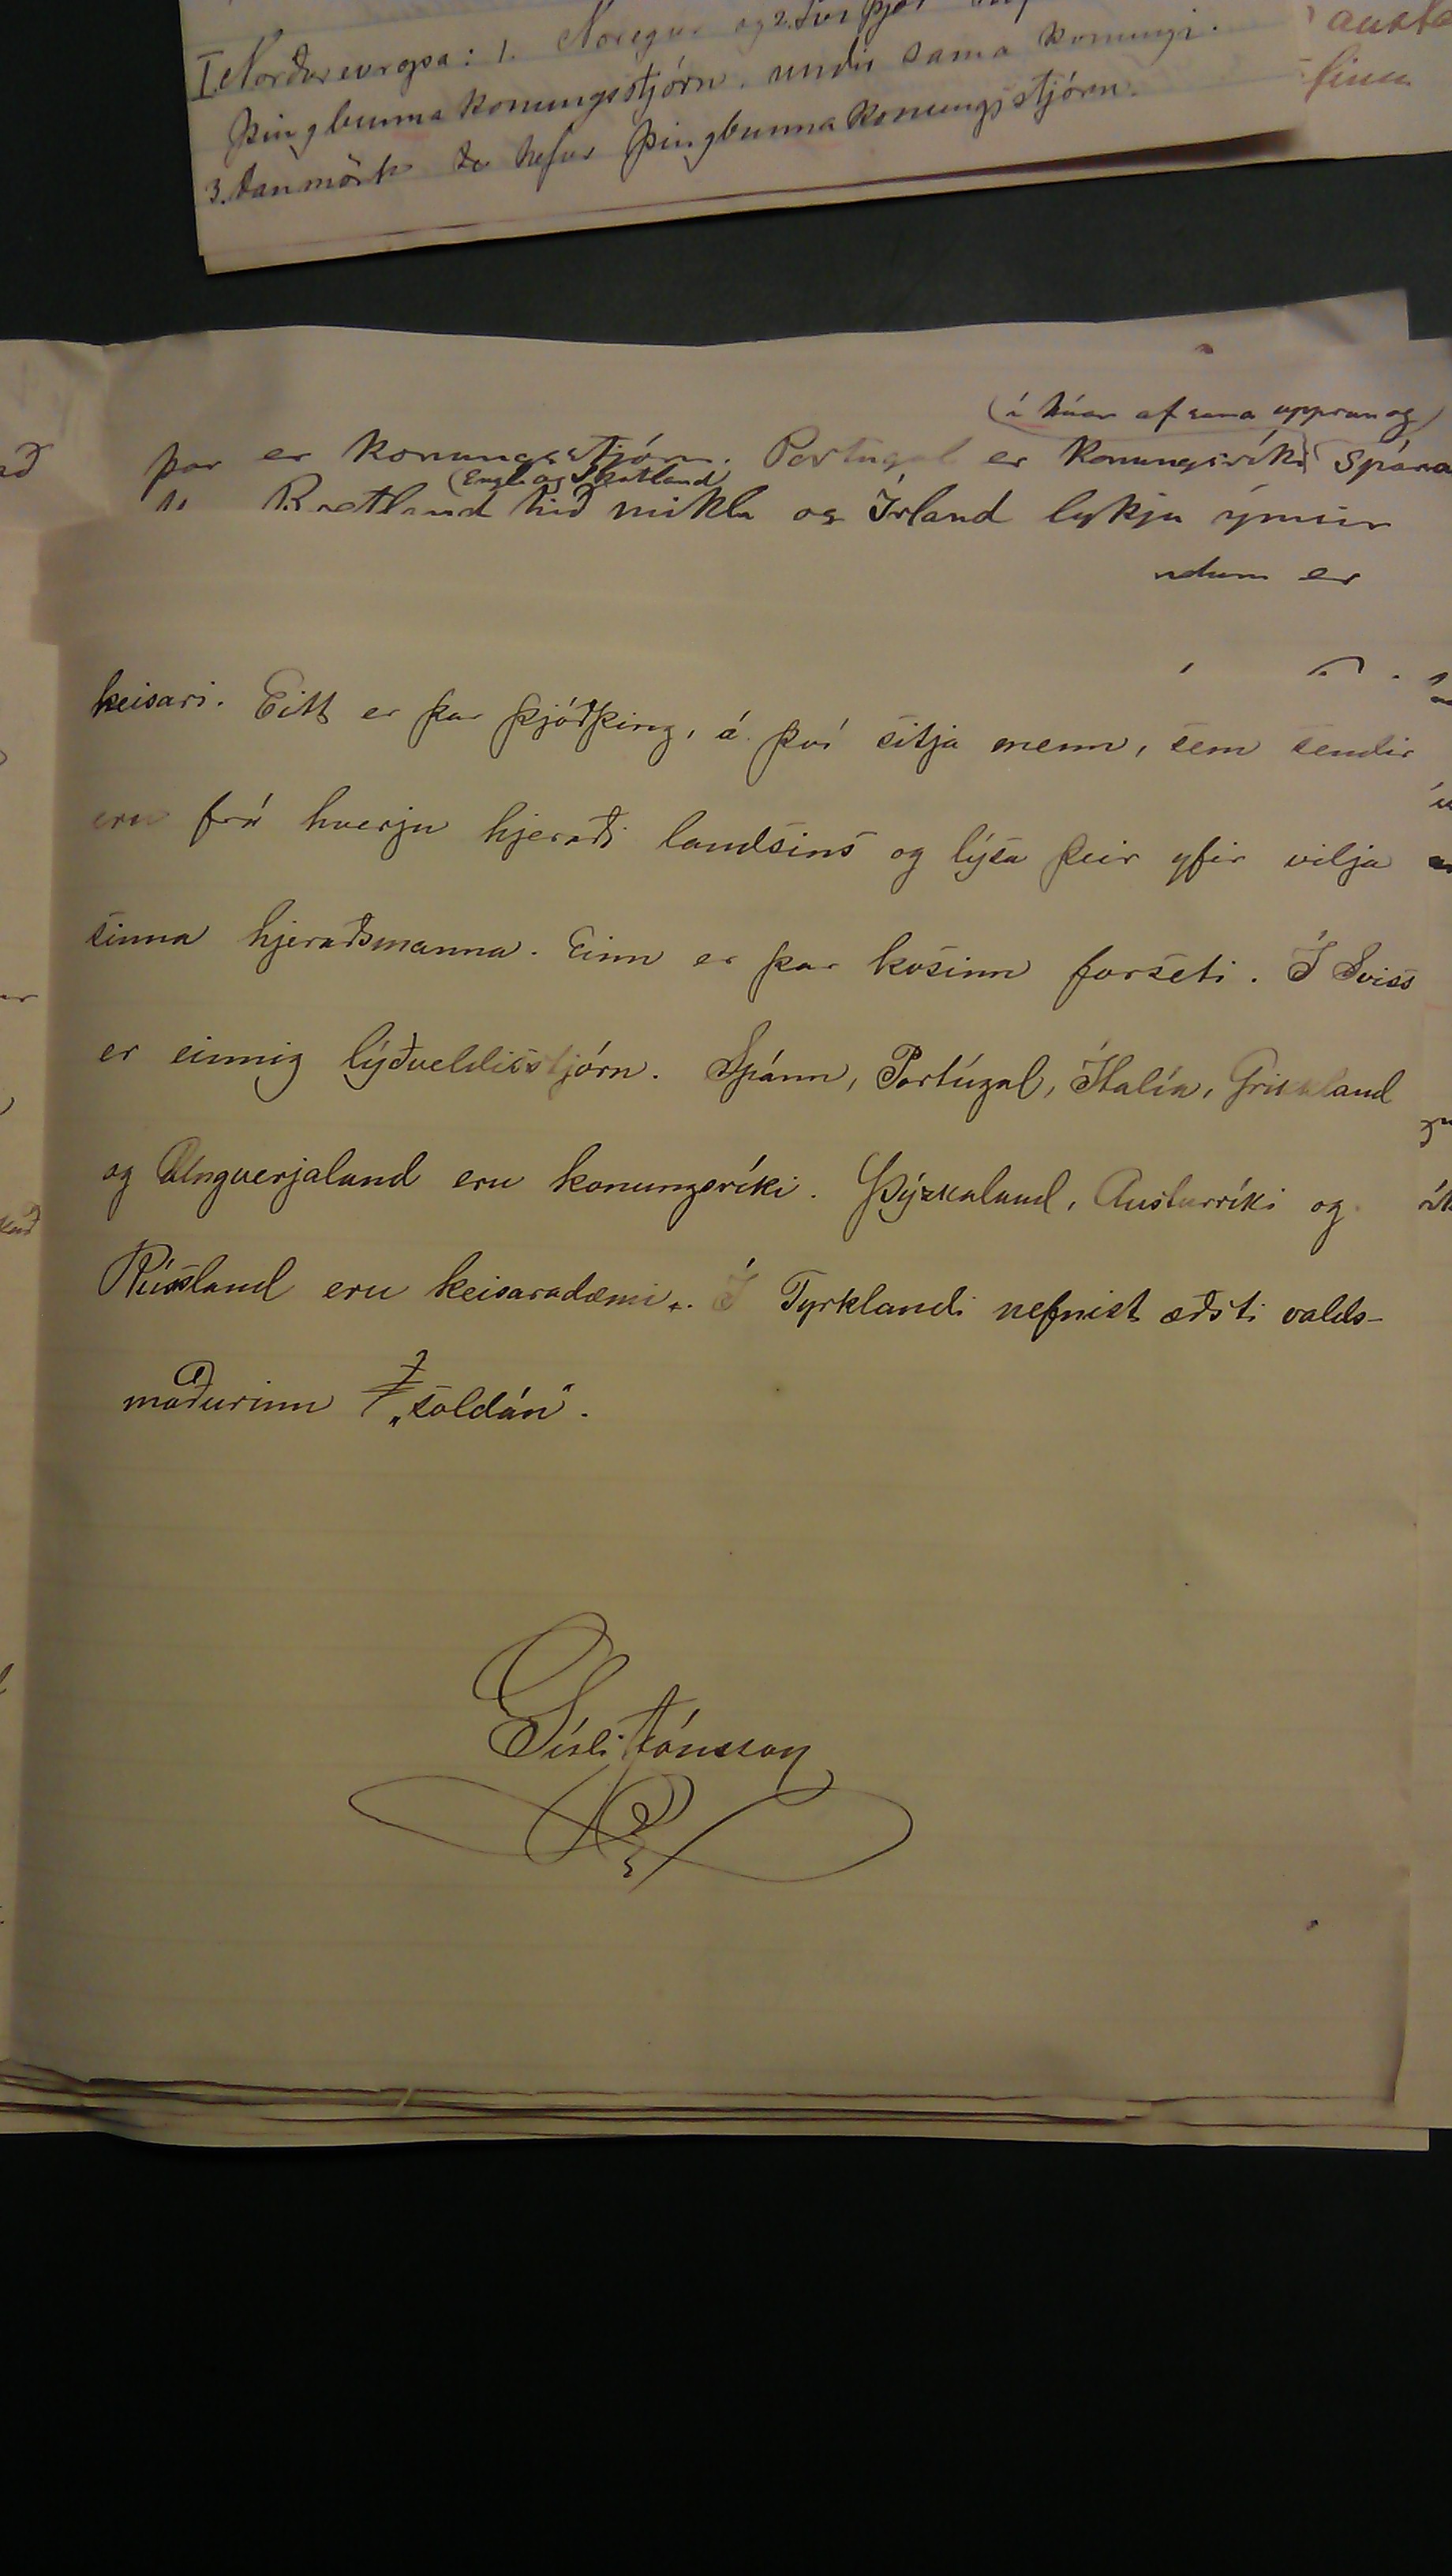 I Norðurevropa: 1. Noregur og 2.
þingbunna konungsstjórn. undir sama konungi.
3. Danmörk hefur þingbunna konungsstjórn.
finn
(í húar af sama uppruna og
þar er konungsstjórn. Portugal er konungsríki
(Engl. og Skotland
Bretland hið mikla og Írland lykja ýmsir
ndum er
keisari. Eitt er þar þjóðþing, á því sitja menn, sem sendir
eru frá hverju hjeraði landsins og lýsa þeir yfir vilja
sinna hjeraðsmanna. Einn er þar kosinn forseti. Í Sviss
er einnig lýðveldisstjórn. Spánn, Portúgal, Ítalía, Grikkland
og Ungverjaland eru konungsríki. Þýzkaland, Austurríki og
Rússland eru keisaradæmi. Í Tyrklandi nefnist æðsti valds-
maðurinn „soldán“.
Gísli Jónsson